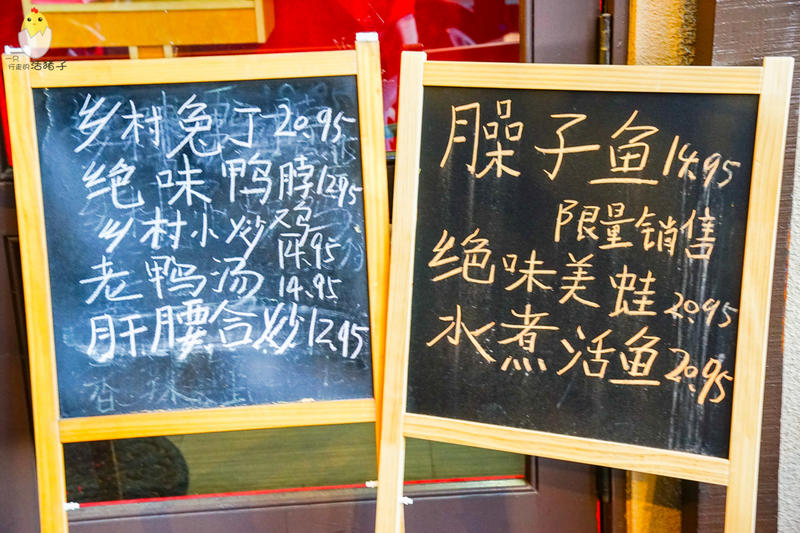 一只
行走的活猪子
乡村兔丁20.95
绝味鸭脖12.95
乡村小炒鸡14.95
老鸭汤14.95
肝腰合炒12.95
臊子鱼14.95
限量销售
绝味美蛙20.95
水煮活鱼20.95